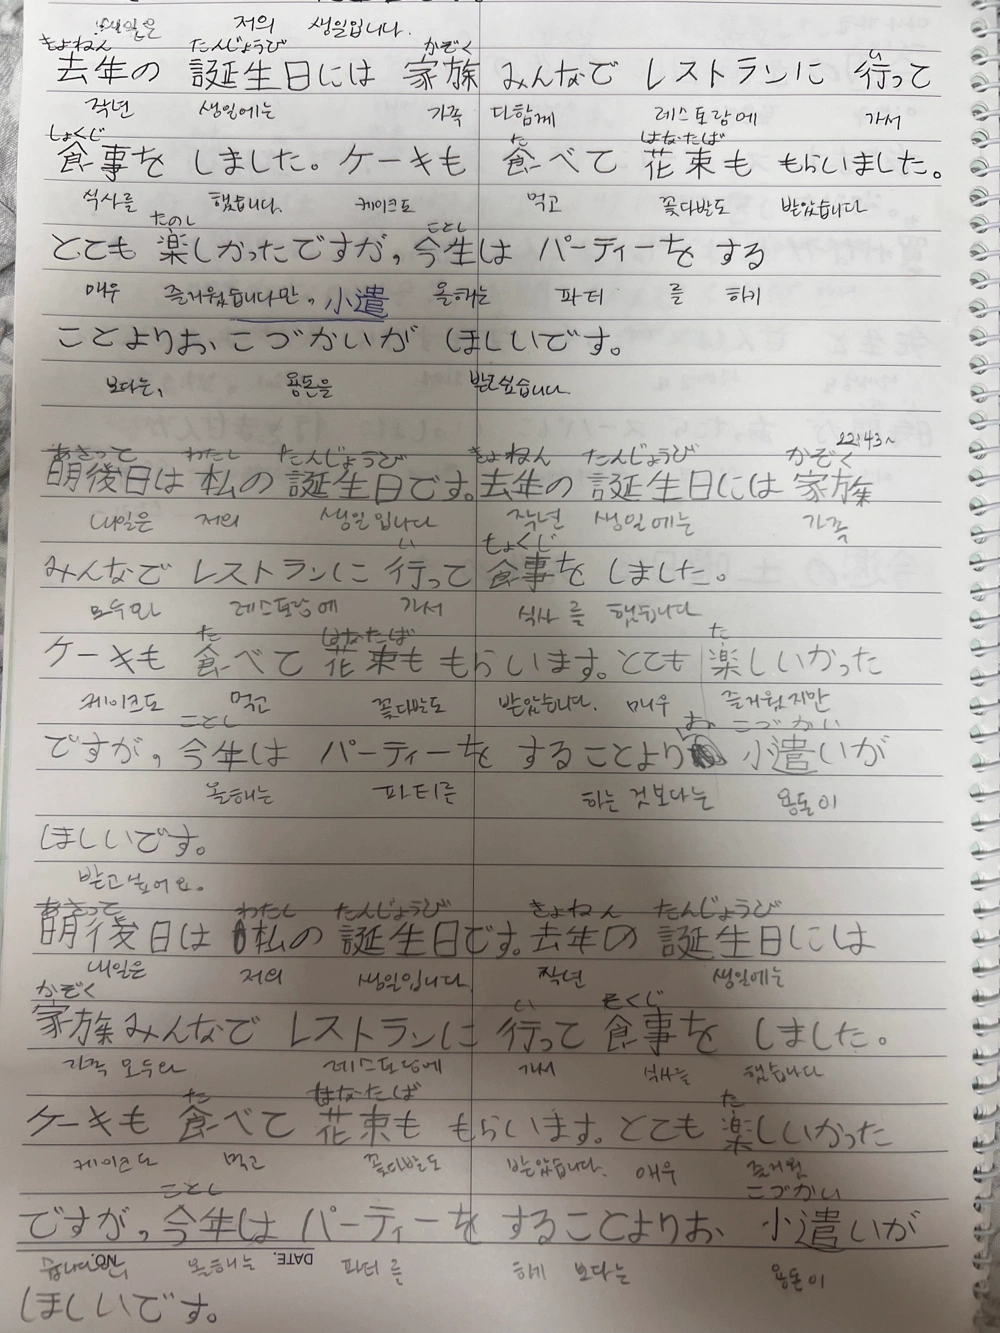 내일은 저의 생일입니다.
きょねん たんじょうび かぞく い
去年の 誕生日には 家族 みんなで レストランに 行って
작년 생일에는 가족 다함께 레스토랑에 가서
しょくじ た はなたば
食事を しました。ケーキも 食べて 花束も もらいました。
식사를 했습니다. 케이크도 먹고 꽃다발도 받았습니다
たのし ことし
とても 楽しかったですが, 今生は パーティーを する
매우 즐거웠습니다만, 小遣 올해는 파티 를 하기
ことよりお、こづかいが ほしいです。
보다는, 용돈을 받고싶습니다.
22:43~
あさって わたし たんじょうび きょねん たんじょうび かぞく
明後日は 私の 誕生日です。去年の 誕生日には 家族
내일은 저의 생일입니다 작년 생일에는 가족
い しょくじ
みんなで レストランに 行って 食事を しました。
모두와 레스토랑에 가서 식사를 했습니다
た はなたば た
ケーキも 食べて 花束も もらいます。とても 楽しいかった
케이크도 먹고 꽃다발도 받았습니다. 매우 즐거웠지만
ことし お こづかい
ですが, 今年は パーティーを することより 小遣いが
올해는 파티를 하는 것보다는 용돈이
ほしいです。
받고싶어요.
あさって わたし たんじょうび きょねん たんじょうび
明後日は 私の 誕生日です。去年の 誕生日には
내일은 저의 생일입니다. 작년 생일에는
かぞく い そくじ
家族 みんなで レストランに 行って 食事を しました。
가족 모두와 레스토랑에 가서 식사를 했습니다
た はなたば た
ケーキも 食べて 花束も もらいます。とても 楽しいかった
케이크도 먹고 꽃다발도 받았습니다. 매우 즐거웠
ことし こづかい
ですが, 今年は パーティーを することよりお、小遣いが
습니다만 NO. 올해는 DATE. 파티 를 하게 보다는 용돈이
ほしいです。